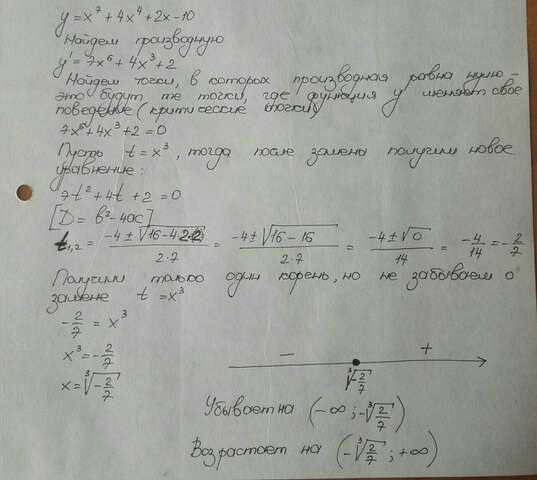 y = x⁷ + 4x⁴ + 2x - 10
Найдем производную
y' = 7x⁶ + 4x³ + 2
Найдем точки, в которых производная равна нулю -
это будут те точки, где функция y меняет свое
поведение (критические точки)
7x⁶ + 4x³ + 2 = 0
Пусть t = x³, тогда после замены получим новое
уравнение:
7t² + 4t + 2 = 0
[D = b² - 4ac]
t₁,₂ = (-4 ± √(16 - 4·2·2)) / (2·7) = (-4 ± √(16 - 16)) / (2·7) = (-4 ± √0) / 14 = -4/14 = -2/7
Получили только один корень, но не забываем о
замене t = x³
-2/7 = x³
x³ = -2/7
x = ∛(-2/7)
- +
∛(-2/7)
Убывает на (-∞; -∛(2/7))
Возрастает на (-∛(2/7); +∞)